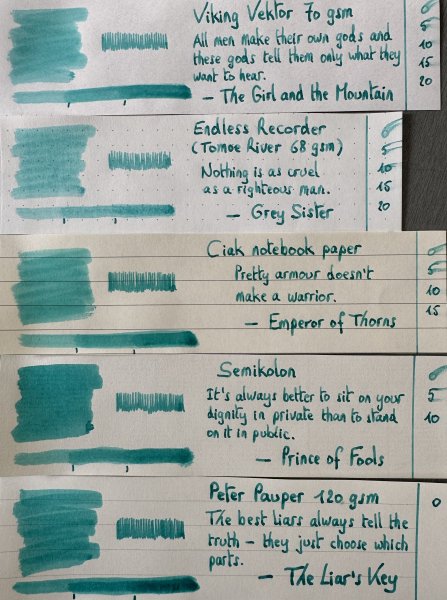 Viking Vektor 70 gsm
All men make their own gods and
these gods tell them only what they
want to hear.
— The Girl and the Mountain
0
5
10
15
20
Endless Recorder
(Tomoe River 68 gsm)
Nothing is as cruel
as a righteous man.
— Grey Sister
0
5
10
15
20
Ciak notebook paper
Pretty armour doesn't
make a warrior.
— Emperor of Thorns
0
5
10
15
Semikolon
It's always better to sit on your
dignity in private than to stand
on it in public.
— Prince of Fools
0
5
10
Peter Pauper 120 gsm
The best liars always tell the
truth – they just choose which
parts.
— The Liar's Key
0